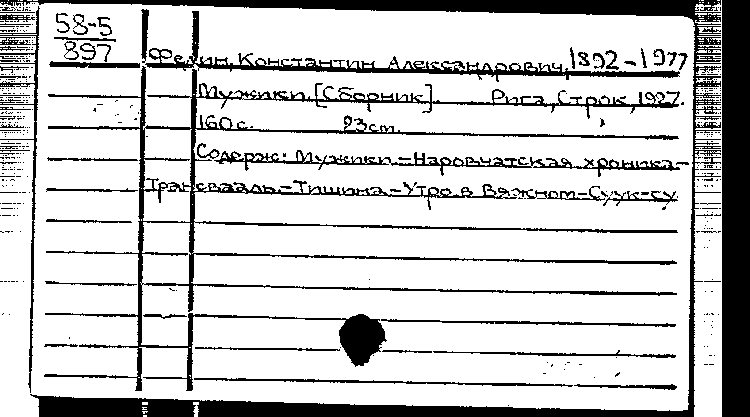 58-5
897
Федин, Константин Александрович, 1892-1977
Мужики. [Сборник]. Рига, Строк, 1927.
160 с. 23 cm.
Содерж: Мужики-Наровчатская хроника-
Трансвааль-Тишина-Утро в Вяжном-Суук-су